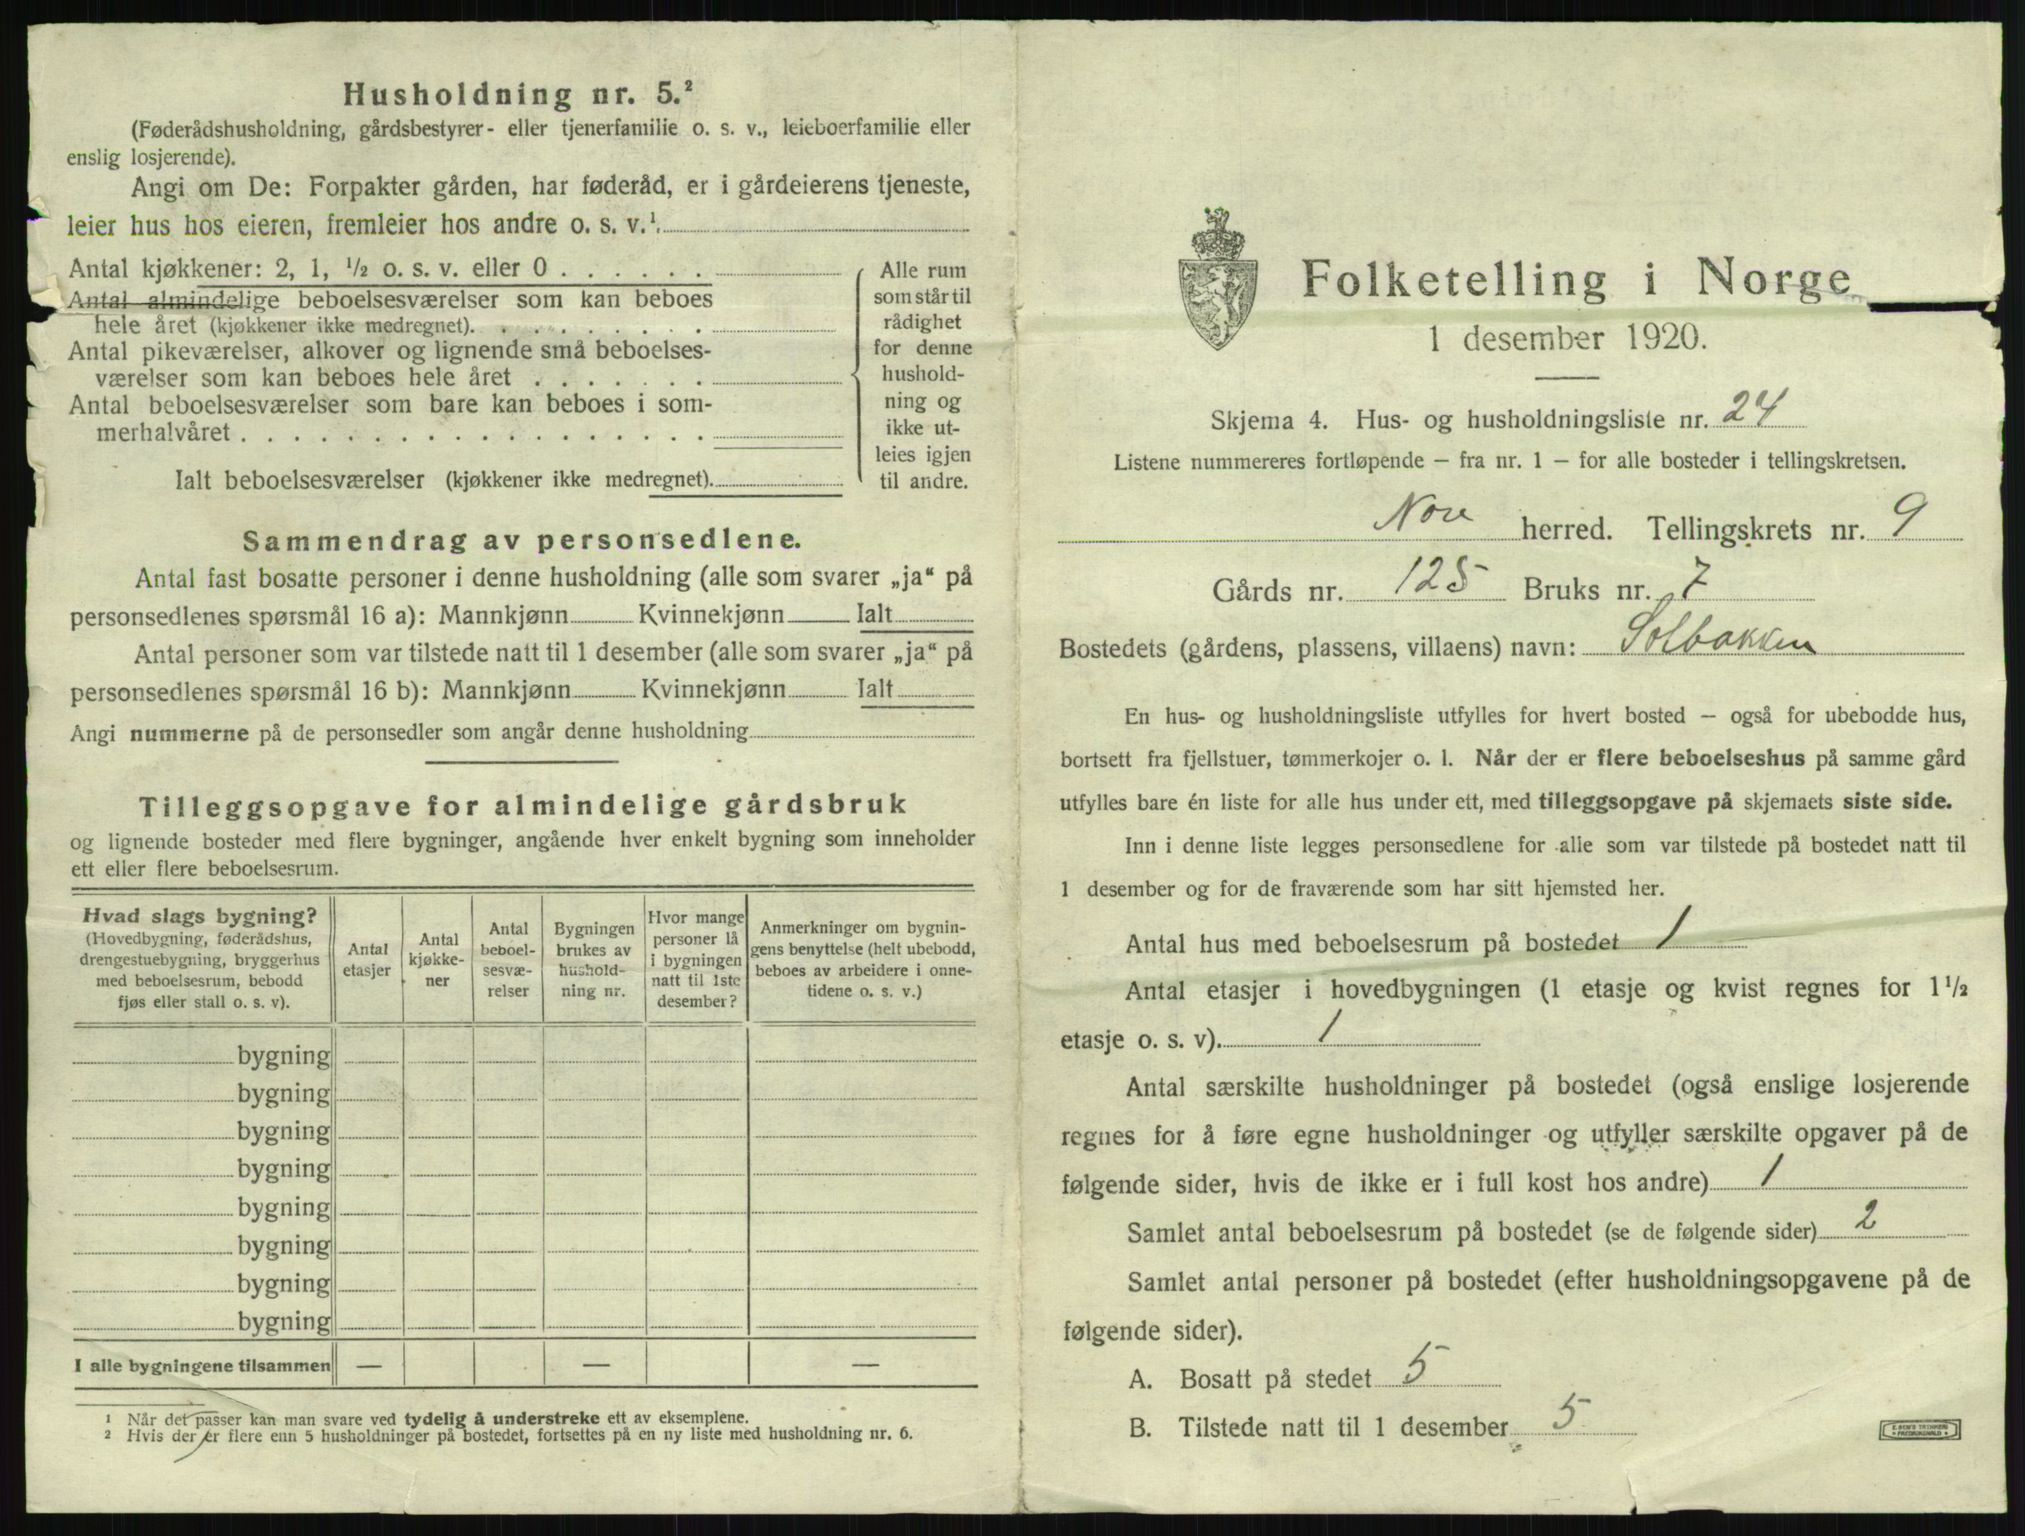 Husholdning nr. 5.²
(Føderådshusholdning, gårdsbestyrer- eller tjenerfamilie o. s. v., leieboerfamilie eller
enslig losjerende).
Angi om De: Forpakter gården, har føderåd, er i gårdeierens tjeneste,
leier hus hos eieren, fremleier hos andre o. s. v.¹.
Antal kjøkkener: 2, 1, ½ o. s. v. eller 0 . . . . . .
Antal almindelige beboelsesværelser som kan beboes
hele året (kjøkkener ikke medregnet). . . . . . . . .
Antal pikeværelser, alkover og lignende små beboelses-
værelser som kan beboes hele året . . . . . . .
Antal beboelsesværelser som bare kan beboes i som-
merhalvåret . . . . . . . . . . . . . . . . . .
Ialt beboelsesværelser (kjøkkener ikke medregnet).
Alle rum
som står til
rådighet
for denne
hushold-
ning og
ikke ut-
leies igjen
til andre.
Sammendrag av personsedlene.
Antal fast bosatte personer i denne husholdning (alle som svarer „ja“ på
personsedlenes spørsmål 16 a): Mannkjønn Kvinnekjønn Ialt
Antal personer som var tilstede natt til 1 desember (alle som svarer „ja“ på
personsedlenes spørsmål 16 b): Mannkjønn Kvinnekjønn Ialt
Angi nummerne på de personsedler som angår denne husholdning
Tilleggsopgave for almindelige gårdsbruk
og lignende bosteder med flere bygninger, angående hver enkelt bygning som inneholder
ett eller flere beboelsesrum.
Hvad slags bygning?
(Hovedbygning, føderådshus,
drengestuebygning, bryggerhus
med beboelsesrum, bebodd
fjøs eller stall o. s. v).
Antal
etasjer
Antal
kjøkke-
ner
Antal
beboel-
sesvæ-
relser
Bygningen
brukes av
hushold-
ning nr.
Hvor mange
personer lå
i bygningen
natt til 1ste
desember?
Anmerkninger om bygnin-
gens benyttelse (helt ubebodd,
beboes av arbeidere i onne-
tidene o. s. v.)
bygning
bygning
bygning
bygning
bygning
bygning
bygning
bygning
I alle bygningene tilsammen — — —
¹ Når det passer kan man svare ved tydelig å understreke ett av eksemplene.
² Hvis der er flere enn 5 husholdninger på bostedet, fortsettes på en ny liste med husholdning nr. 6.
Folketelling i Norge
1 desember 1920.
Skjema 4. Hus- og husholdningsliste nr. 24
Listene nummereres fortløpende — fra nr. 1 — for alle bosteder i tellingskretsen.
Nore herred. Tellingskrets nr. 9
Gårds nr. 125 Bruks nr. 7
Bostedets (gårdens, plassens, villaens) navn: Solbakken
En hus- og husholdningsliste utfylles for hvert bosted — også for ubebodde hus,
bortsett fra fjellstuer, tømmerkojer o. l. Når der er flere beboelseshus på samme gård
utfylles bare én liste for alle hus under ett, med tilleggsopgave på skjemaets siste side.
Inn i denne liste legges personsedlene for alle som var tilstede på bostedet natt til
1 desember og for de fraværende som har sitt hjemsted her.
Antal hus med beboelsesrum på bostedet 1
Antal etasjer i hovedbygningen (1 etasje og kvist regnes for 1½
etasje o. s. v). 1
Antal særskilte husholdninger på bostedet (også enslige losjerende
regnes for å føre egne husholdninger og utfyller særskilte opgaver på de
følgende sider, hvis de ikke er i full kost hos andre) 1
Samlet antal beboelsesrum på bostedet (se de følgende sider) 2
Samlet antal personer på bostedet (efter husholdningsopgavene på de
følgende sider).
A. Bosatt på stedet 5
B. Tilstede natt til 1 desember 5